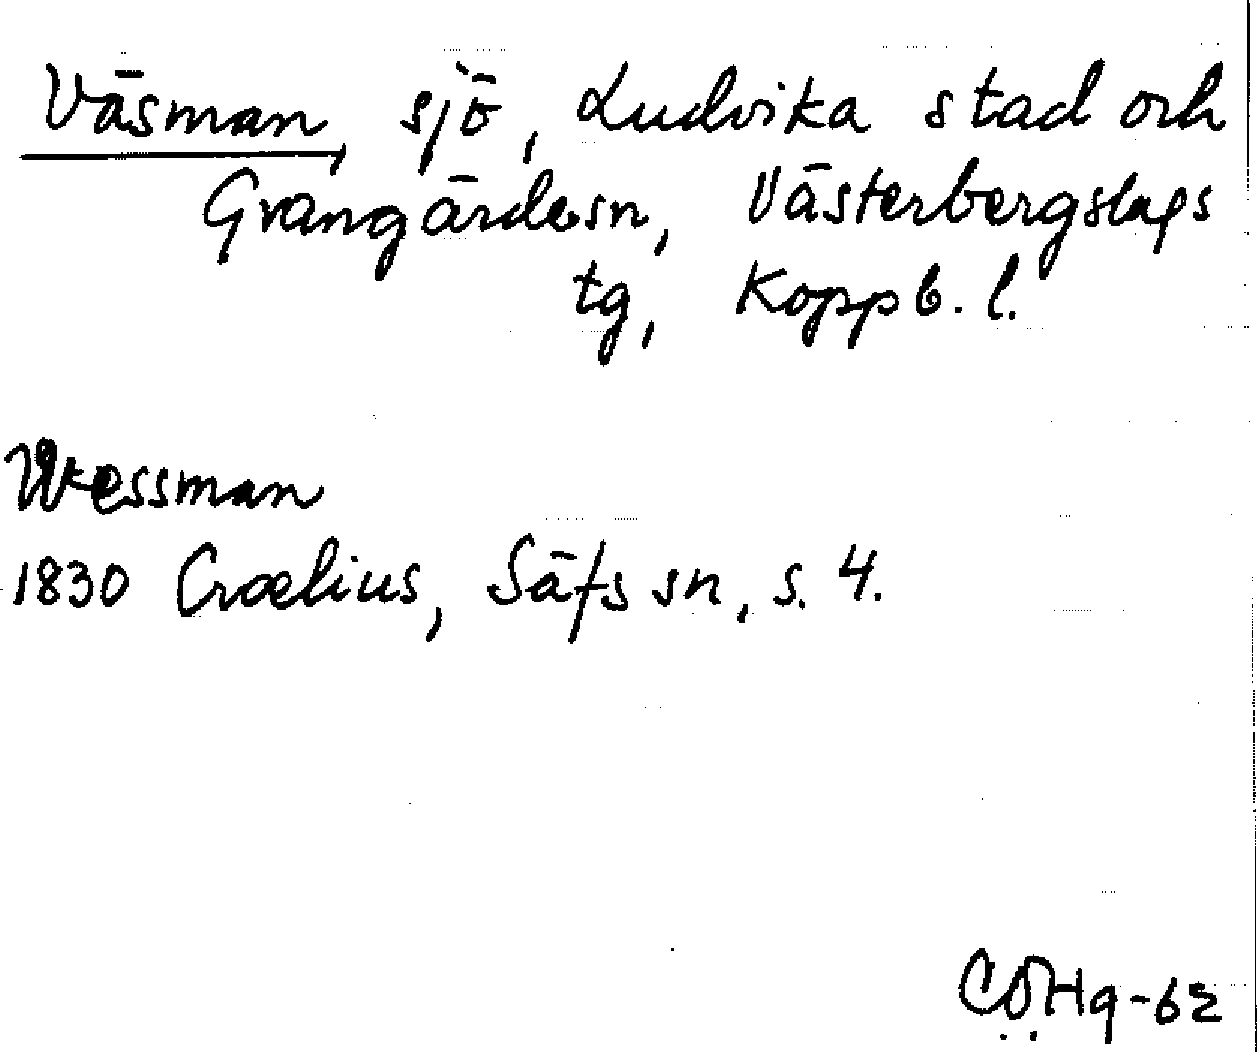 Väsman, sjö, Ludvika stad och
Grangärde sn, Västerbergslags
tg, Koppb. l.
Wessman
1830 Craelius, Säfs sn, s. 4.
CÖHg-62